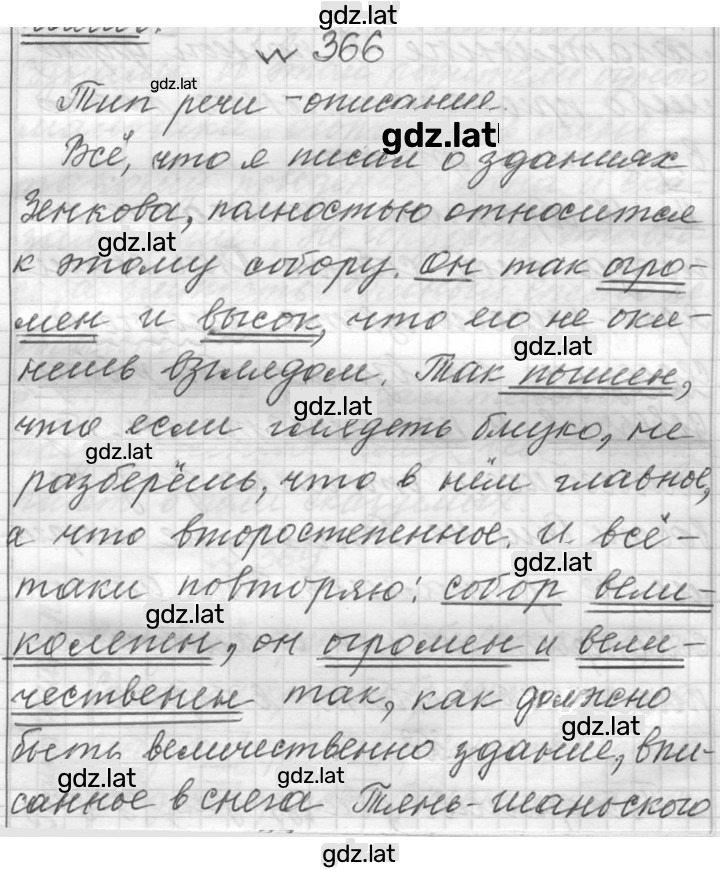 gdz.lat
№ 366
gdz.lat
Тип речи - описание.
gdz.lat
Всё, что я писал о зданиях
Зенкова, полностью относится
gdz.lat
к этому собору. Он так огро-
мен и высок, что его не оки-
gdz.lat
нешь взглядом. Так пышен,
gdz.lat
что если глядеть близко, не
gdz.lat
разберёшь, что в нём главное,
а что второстепенное. И всё-
gdz.lat
таки повторяю: собор вели-
gdz.lat
колепен, он огромен и вели-
чественен так, как должно
gdz.lat
быть величественно здание, впи-
gdz.lat gdz.lat
санное в снега Тянь-шаньского
gdz.lat